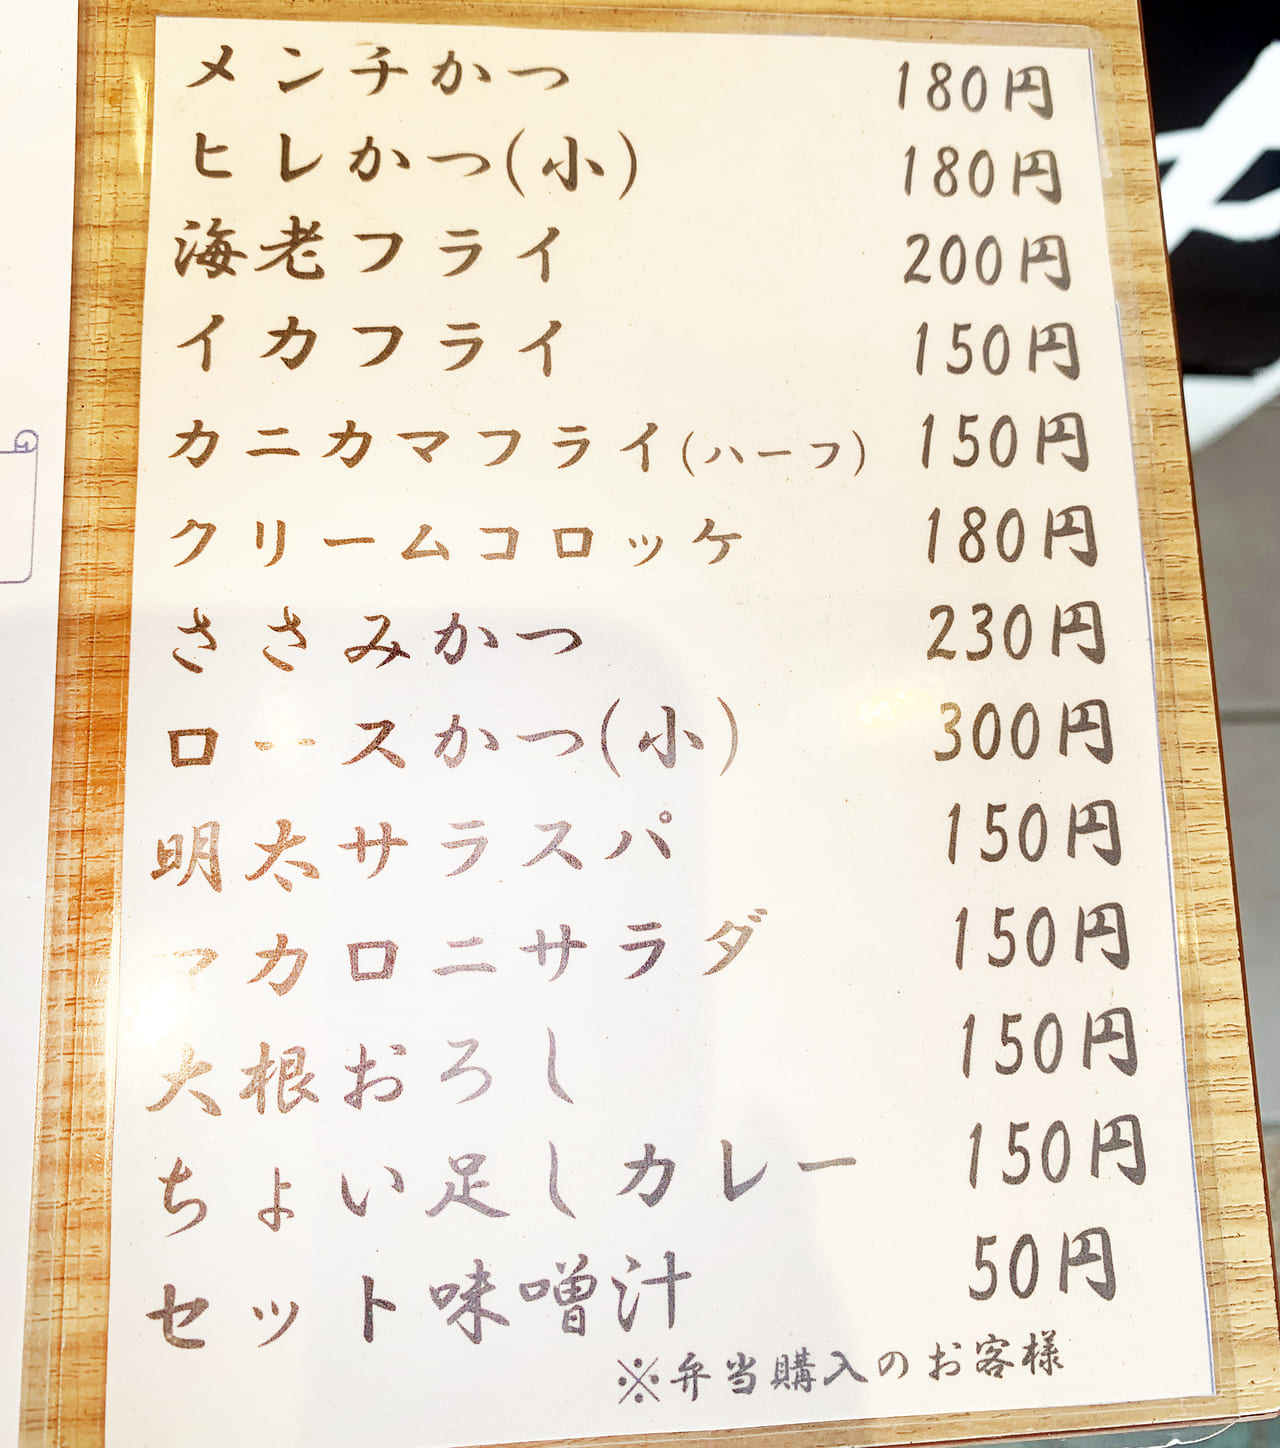 メンチかつ 180円
ヒレかつ(小) 180円
海老フライ 200円
イカフライ 150円
カニカマフライ(ハーフ) 150円
クリームコロッケ 180円
ささみかつ 230円
ロースかつ(小) 300円
明太サラスパ 150円
マカロニサラダ 150円
大根おろし 150円
ちょい足しカレー 150円
セット味噌汁 50円
※弁当購入のお客様